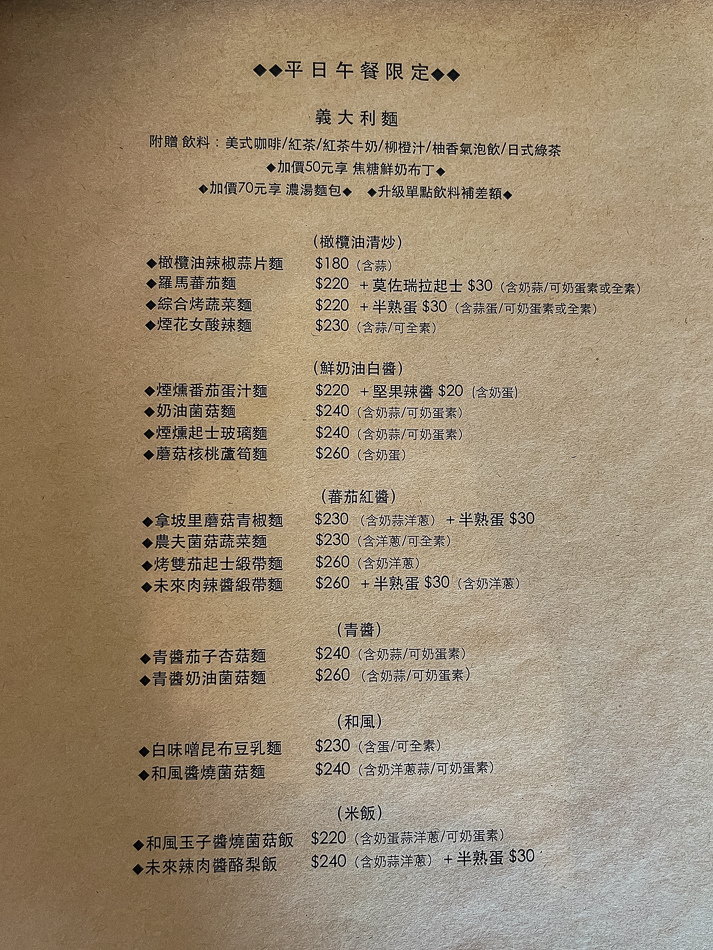 ◆◆平日午餐限定◆◆
義大利麵
附贈 飲料：美式咖啡/紅茶/紅茶牛奶/柳橙汁/柚香氣泡飲/日式綠茶
◆加價50元享 焦糖鮮奶布丁◆
◆加價70元享 濃湯麵包◆ ◆升級單點飲料補差額◆
(橄欖油清炒)
◆橄欖油辣椒蒜片麵 $180 (含蒜)
◆羅馬蕃茄麵 $220 +莫佐瑞拉起士 $30 (含奶蒜/可奶蛋素或全素)
◆綜合烤蔬菜麵 $220 +半熟蛋 $30 (含蒜蛋/可奶蛋素或全素)
◆煙花女酸辣麵 $230 (含蒜/可全素)
(鮮奶油白醬)
◆煙燻番茄蛋汁麵 $220 +堅果辣醬 $20 (含奶蛋)
◆奶油菌菇麵 $240 (含奶蒜/可奶蛋素)
◆煙燻起士玻璃麵 $240 (含奶蒜/可奶蛋素)
◆蘑菇核桃蘆筍麵 $260 (含奶蛋)
(蕃茄紅醬)
◆拿坡里蘑菇青椒麵 $230 (含奶蒜洋蔥) +半熟蛋 $30
◆農夫菌菇蔬菜麵 $230 (含洋蔥/可全素)
◆烤雙茄起士緞帶麵 $260 (含奶洋蔥)
◆未來肉辣醬緞帶麵 $260 +半熟蛋 $30 (含奶洋蔥)
(青醬)
◆青醬茄子杏菇麵 $240 (含奶蒜/可奶蛋素)
◆青醬奶油菌菇麵 $260 (含奶蒜/可奶蛋素)
(和風)
◆白味噌昆布豆乳麵 $230 (含蛋/可全素)
◆和風醬燒菌菇麵 $240 (含奶洋蔥蒜/可奶蛋素)
(米飯)
◆和風玉子醬燒菌菇飯 $220 (含奶蛋蒜洋蔥/可奶蛋素)
◆未來辣肉醬酪梨飯 $240 (含奶蒜洋蔥) +半熟蛋 $30